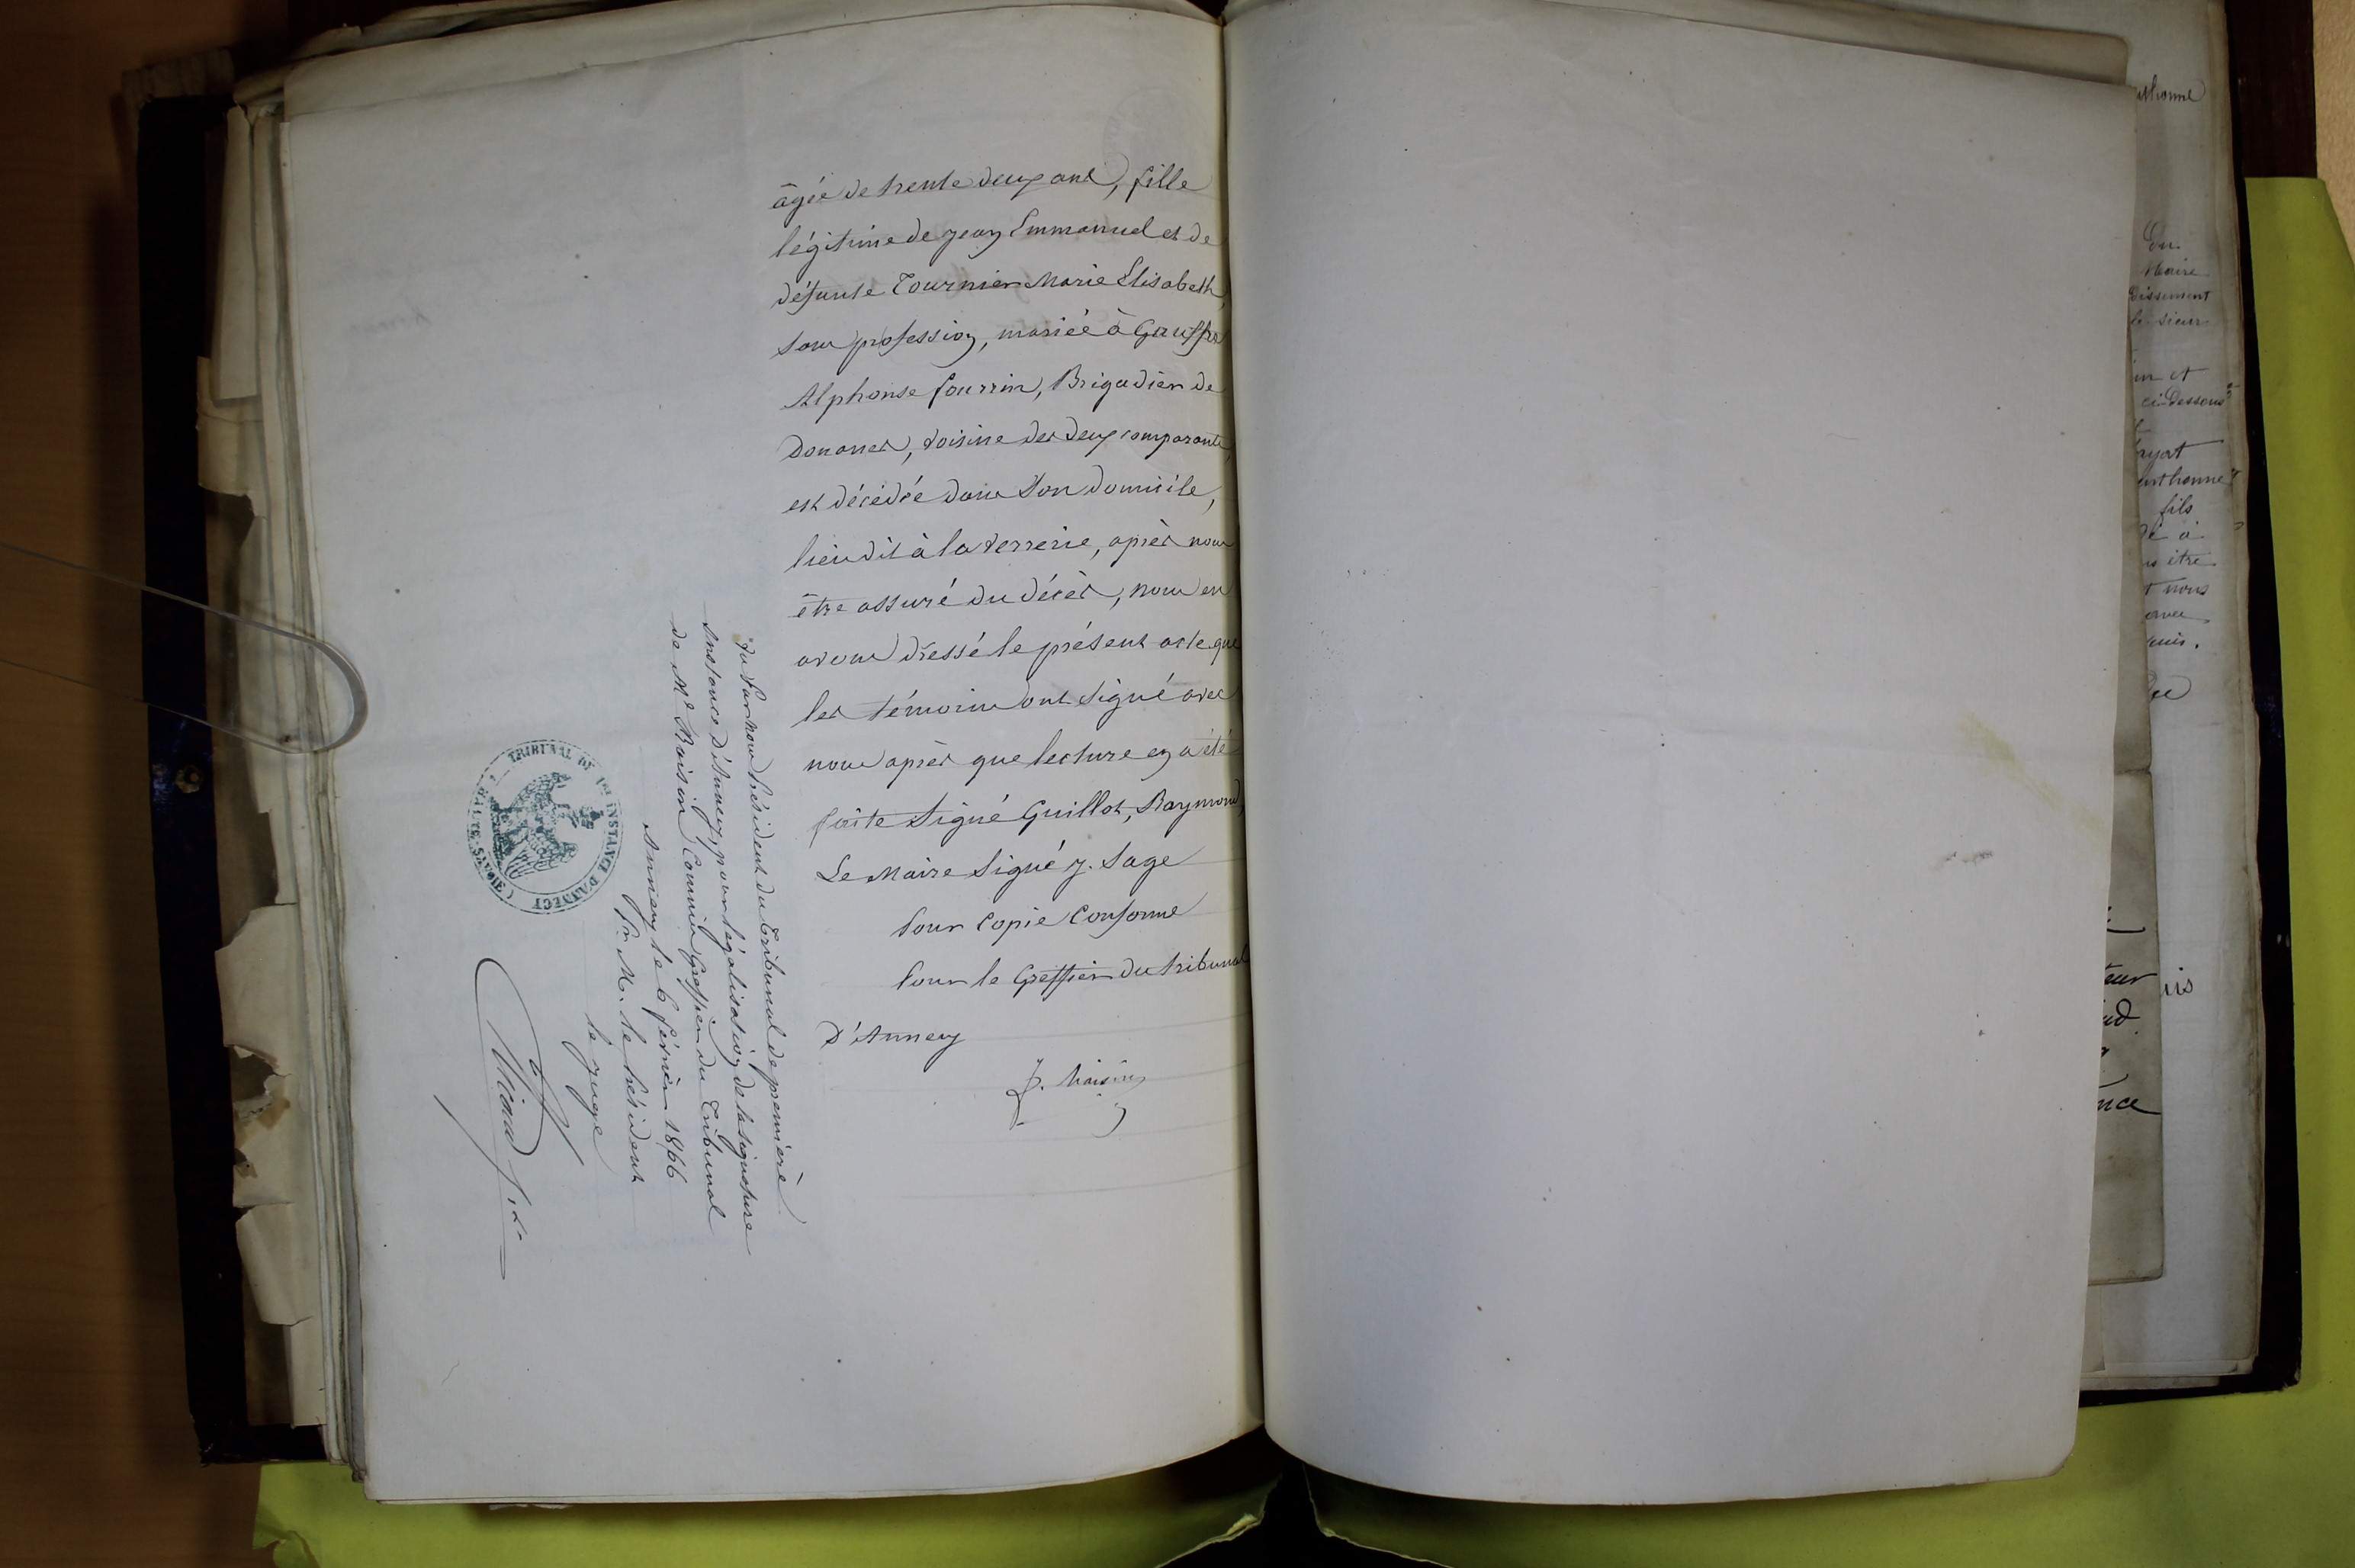 âgée de trente deux ans, fille
légitime de Jean Emmanuel et de
défunte Tournier Marie Elisabeth,
sans profession, mariée à
Alphonse Fourrin, Brigadier de
Douanes, voisine des deux comparants,
est décédée dans son domicile,
lieu dit à la verrerie, après nous
être assuré du décès, nous en
avons dressé le présent acte que
les témoins ont signé avec
nous après que lecture en a été
faite Signé Guillot, Raymond,
Le Maire Signé J. Sage
Pour Copie Conforme
Pour le Greffier du tribunal
d'Annecy
Vu par nous Président du Tribunal de première
instance d'Annecy, pour légalisation de la signature
de Me Commis Greffier du Tribunal
Annecy le 6 février 1866
Pr M. le Président
le juge
TRIBUNAL DE 1ère INSTANCE D'ANNECY (HTE-SAVOIE)
thonne
Du
Maire
dissement
le sieur
in et
ci-dessous
fils
é à
ns être
t nous
avec
teur
nce